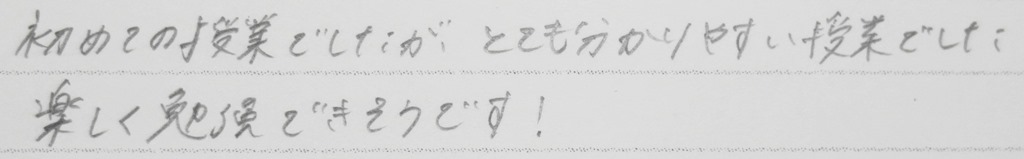 初めての授業でしたが、とても分かりやすい授業でした
楽しく勉強できそうです!